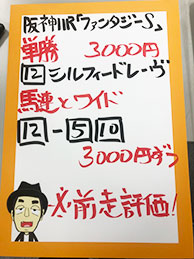 阪神11R「ファンタジーS」
単勝 3000円
12シルフィードレーヴ
馬連とワイド
12-5 10
3000円ずつ
※前走評価!